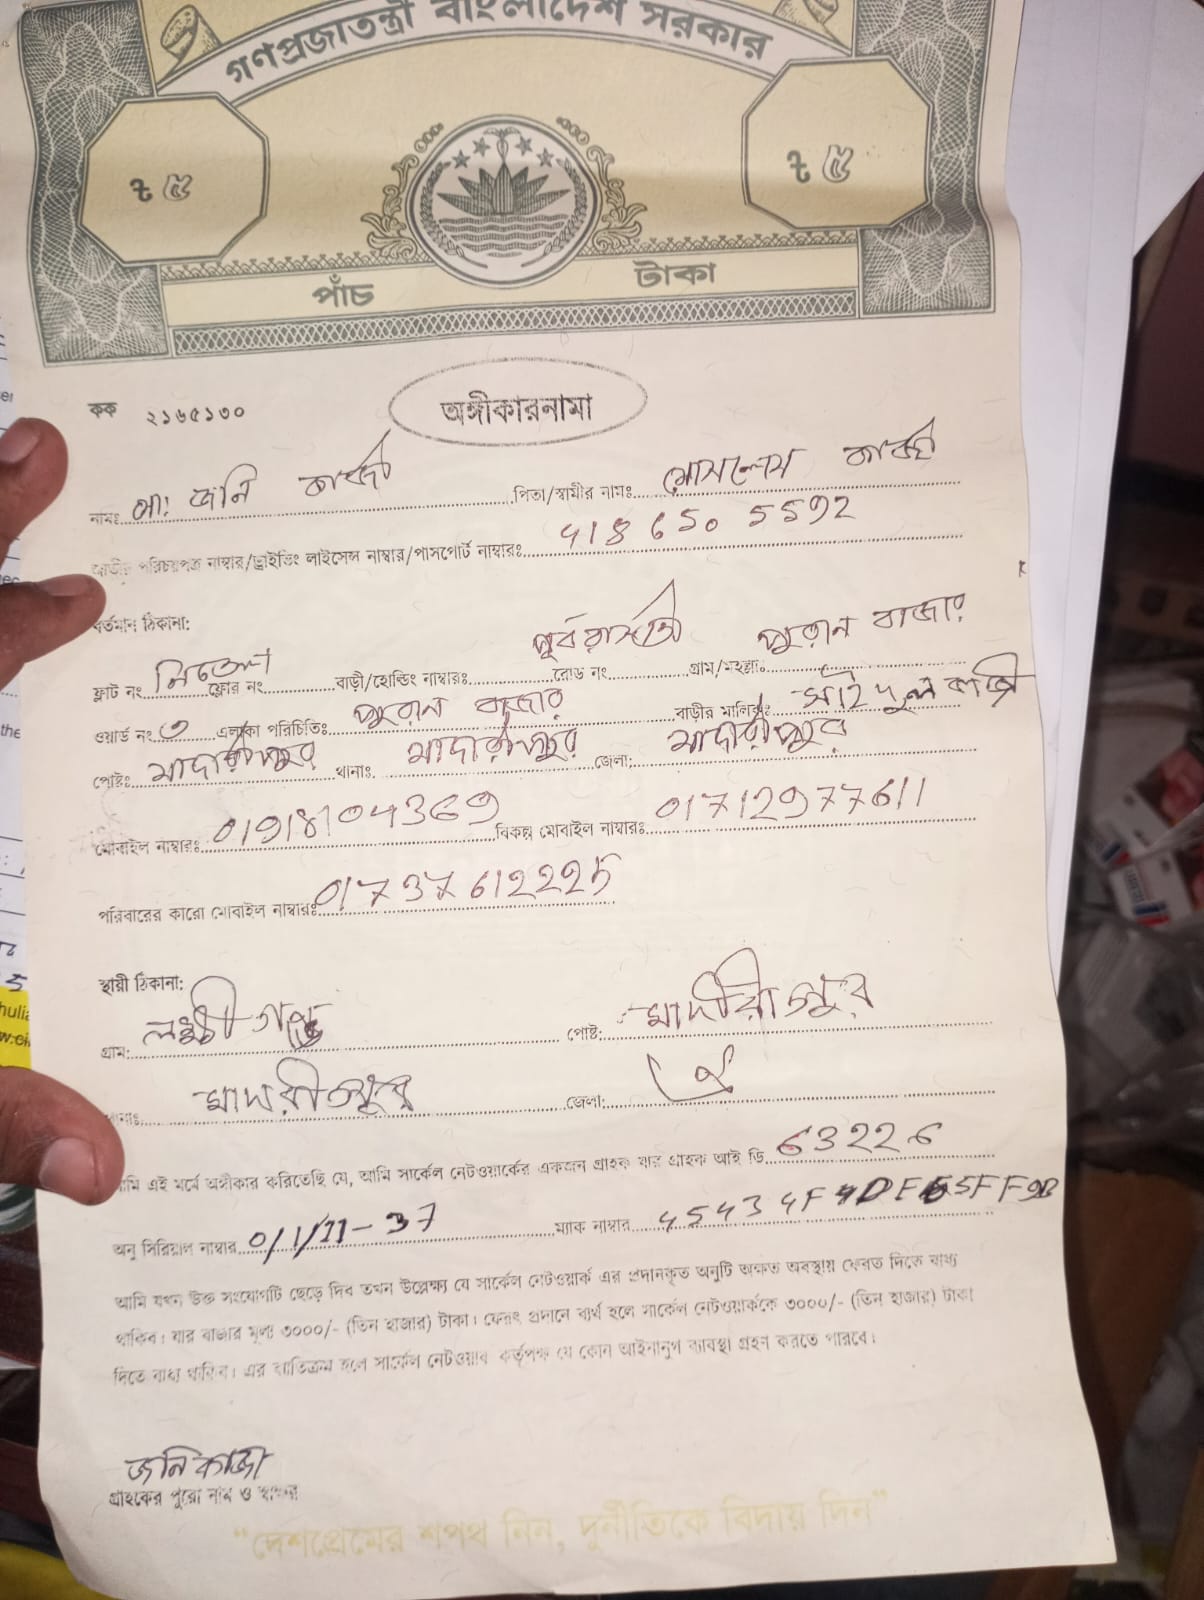 গণপ্রজাতন্ত্রী বাংলাদেশ সরকার
৳ ৫ ৳ ৫
পাঁচ টাকা
কক ২১৬৫১৩০ অঙ্গীকারনামা
নামঃ মো: জনি কাজী পিতা/স্বামীর নামঃ মোসলেম কাজী
জাতীয় পরিচয়পত্র নাম্বার/ড্রাইভিং লাইসেন্স নাম্বার/পাসপোর্ট নাম্বারঃ
বর্তমান ঠিকানা:
ফ্লাট নং ফ্লোর নং বাড়ী/হোল্ডিং নাম্বারঃ রোড নং গ্রাম/মহল্লাঃ পুরান বাজার
ওয়ার্ড নং ৩ এলাকা পরিচিতিঃ পুরান বাজার বাড়ীর মালিকঃ সাইদুল কাজী
পোষ্টঃ মাদারীপুর থানাঃ মাদারীপুর জেলা: মাদারীপুর
মোবাইল নাম্বারঃ বিকল্প মোবাইল নাম্বারঃ 01712977611
পরিবারের কারো মোবাইল নাম্বারঃ 01737612225
স্থায়ী ঠিকানা:
গ্রাম: পোষ্ট: মাদারীপুর
থানাঃ মাদারীপুর জেলা: ঐ
আমি এই মর্মে অঙ্গীকার করিতেছি যে, আমি সার্কেল নেটওয়ার্কের একজন গ্রাহক যার গ্রাহক আই ডি 63226
অনু সিরিয়াল নাম্বার 0/1/11-37 ম্যাক নাম্বার
আমি যখন উক্ত সংযোগটি ছেড়ে দিব তখন উল্লেক্ষ্য যে সার্কেল নেটওয়ার্ক এর প্রদানকৃত অনুটি অক্ষত অবস্থায় ফেরত দিতে বাধ্য
থাকিব। যার বাজার মূল্য ৩০০০/- (তিন হাজার) টাকা। ফেরৎ প্রদানে ব্যর্থ হলে সার্কেল নেটওয়ার্ককে ৩০০০/- (তিন হাজার) টাকা
দিতে বাধ্য থাকিব। এর ব্যতিক্রম হলে সার্কেল নেটওয়ার্ক কর্তৃপক্ষ যে কোন আইনানুগ ব্যাবস্থা গ্রহন করতে পারবে।
জনি কাজী
গ্রাহকের পুরো নাম ও স্বাক্ষর
"দেশপ্রেমের শপথ নিন, দুর্নীতিকে বিদায় দিন"